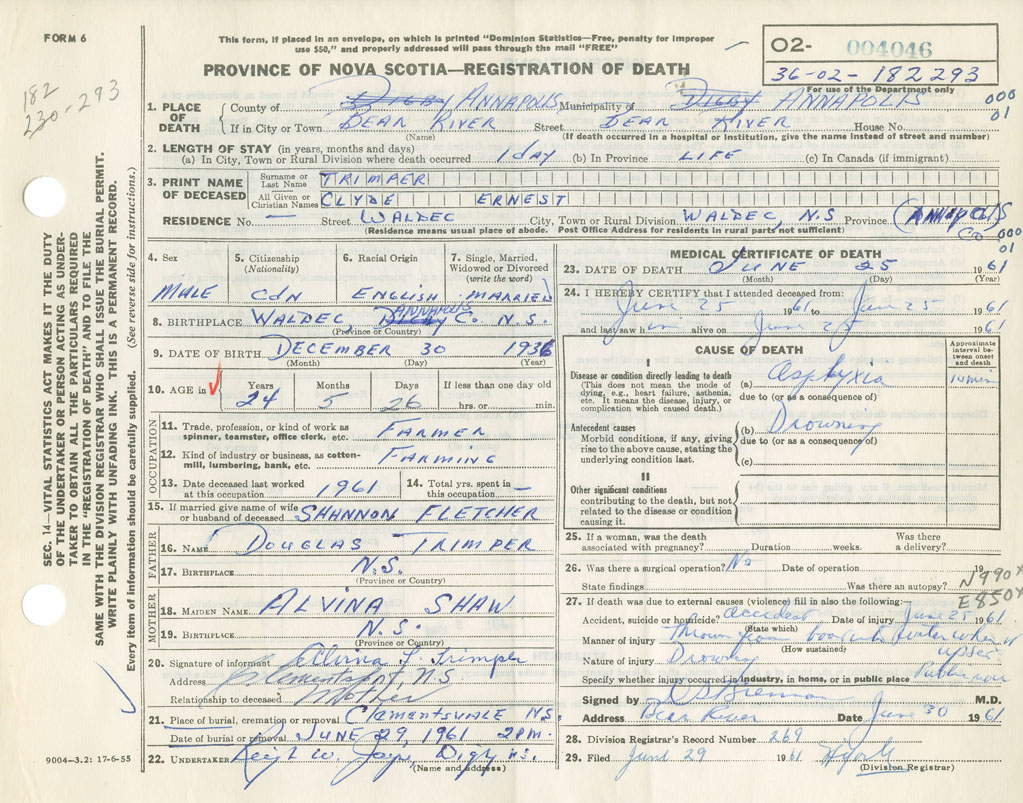 FORM 6
This form, if placed in an envelope, on which is printed "Dominion Statistics—Free, penalty for improper
use $50," and properly addressed will pass through the mail "FREE"
PROVINCE OF NOVA SCOTIA—REGISTRATION OF DEATH
O2- 004046
36-02-182293
For use of the Department only
182
230-293
SEC. 14—VITAL STATISTICS ACT MAKES IT THE DUTY
OF THE UNDERTAKER OR PERSON ACTING AS UNDER-
TAKER TO OBTAIN ALL THE PARTICULARS REQUIRED
IN THE "REGISTRATION OF DEATH" AND TO FILE THE
SAME WITH THE DIVISION REGISTRAR WHO SHALL ISSUE THE BURIAL PERMIT.
WRITE PLAINLY WITH UNFADING INK. THIS IS A PERMANENT RECORD.
Every item of information should be carefully supplied. (See reverse side for instructions.)
1. PLACE OF DEATH
County of DIGBY ANNAPOLIS Municipality of DIGBY ANNAPOLIS 000 01
If in City or Town BEAR RIVER Street BEAR RIVER House No.
(Name) (If death occurred in a hospital or institution, give the name instead of street and number)
2. LENGTH OF STAY (in years, months and days)
(a) In City, Town or Rural Division where death occurred 1 DAY (b) In Province LIFE (c) In Canada (if immigrant)
3. PRINT NAME OF DECEASED
Surname or Last Name TRIMPER
All Given or Christian Names CLYDE ERNEST
RESIDENCE No. — Street WALDEC City, Town or Rural Division WALDEC, N.S Province (ANNAPOLIS CO 000 01
(Residence means usual place of abode. Post Office Address for residents in rural parts not sufficient)
4. Sex MALE
5. Citizenship (Nationality) CDN
6. Racial Origin ENGLISH
7. Single, Married, Widowed or Divorced (write the word) MARRIED
8. BIRTHPLACE WALDEC DIGBY ANNAPOLIS Co. N.S.
(Province or Country)
9. DATE OF BIRTH DECEMBER 30 1936
(Month) (Day) (Year)
10. AGE in Years 24 Months 5 Days 26 If less than one day old hrs. or min.
OCCUPATION
11. Trade, profession, or kind of work as spinner, teamster, office clerk, etc. FARMER
12. Kind of industry or business, as cotton-mill, lumbering, bank, etc. FARMING
13. Date deceased last worked at this occupation 1961
14. Total yrs. spent in this occupation —
15. If married give name of wife or husband of deceased SHANNON FLETCHER
FATHER
16. NAME DOUGLAS TRIMPER
17. BIRTHPLACE N.S.
(Province or Country)
MOTHER
18. MAIDEN NAME ALVINA SHAW
19. BIRTHPLACE N.S.
(Province or Country)
20. Signature of informant Alvina L. Trimper
Address Clementsport, N.S
Relationship to deceased Mother
21. Place of burial, cremation or removal CLEMENTSVALE N.S.
Date of burial or removal JUNE 29, 1961 2 P.M.
22. UNDERTAKER W. Digby N.S.
(Name and address)
9004—3.2: 17-6-55
MEDICAL CERTIFICATE OF DEATH
23. DATE OF DEATH JUNE 25 1961
(Month) (Day) (Year)
24. I HEREBY CERTIFY that I attended deceased from:
June 25 1961 to June 25 1961
and last saw him alive on June 25 1961
CAUSE OF DEATH
Approximate interval between onset and death
I
Disease or condition directly leading to death
(This does not mean the mode of dying, e.g., heart failure, asthenia, etc. It means the disease, injury, or complication which caused death.)
(a) Asphyxia 10 min
due to (or as a consequence of)
Antecedent causes
Morbid conditions, if any, giving rise to the above cause, stating the underlying condition last.
(b) Drowning
due to (or as a consequence of)
(c)
II
Other significant conditions contributing to the death, but not related to the disease or condition causing it.
25. If a woman, was the death associated with pregnancy? Duration weeks. Was there a delivery?
26. Was there a surgical operation? No Date of operation 19
State findings Was there an autopsy? N990X
27. If death was due to external causes (violence) fill in also the following:— E850X
Accident, suicide or homicide? Accident Date of injury June 25 1961
(State which)
Manner of injury Thrown from boat into water when it upset
(How sustained)
Nature of injury Drowning
Specify whether injury occurred in industry, in home, or in public place Public
Signed by M.D.
Address Bear River Date June 30 1961
28. Division Registrar's Record Number 269
29. Filed June 29 1961
(Division Registrar)